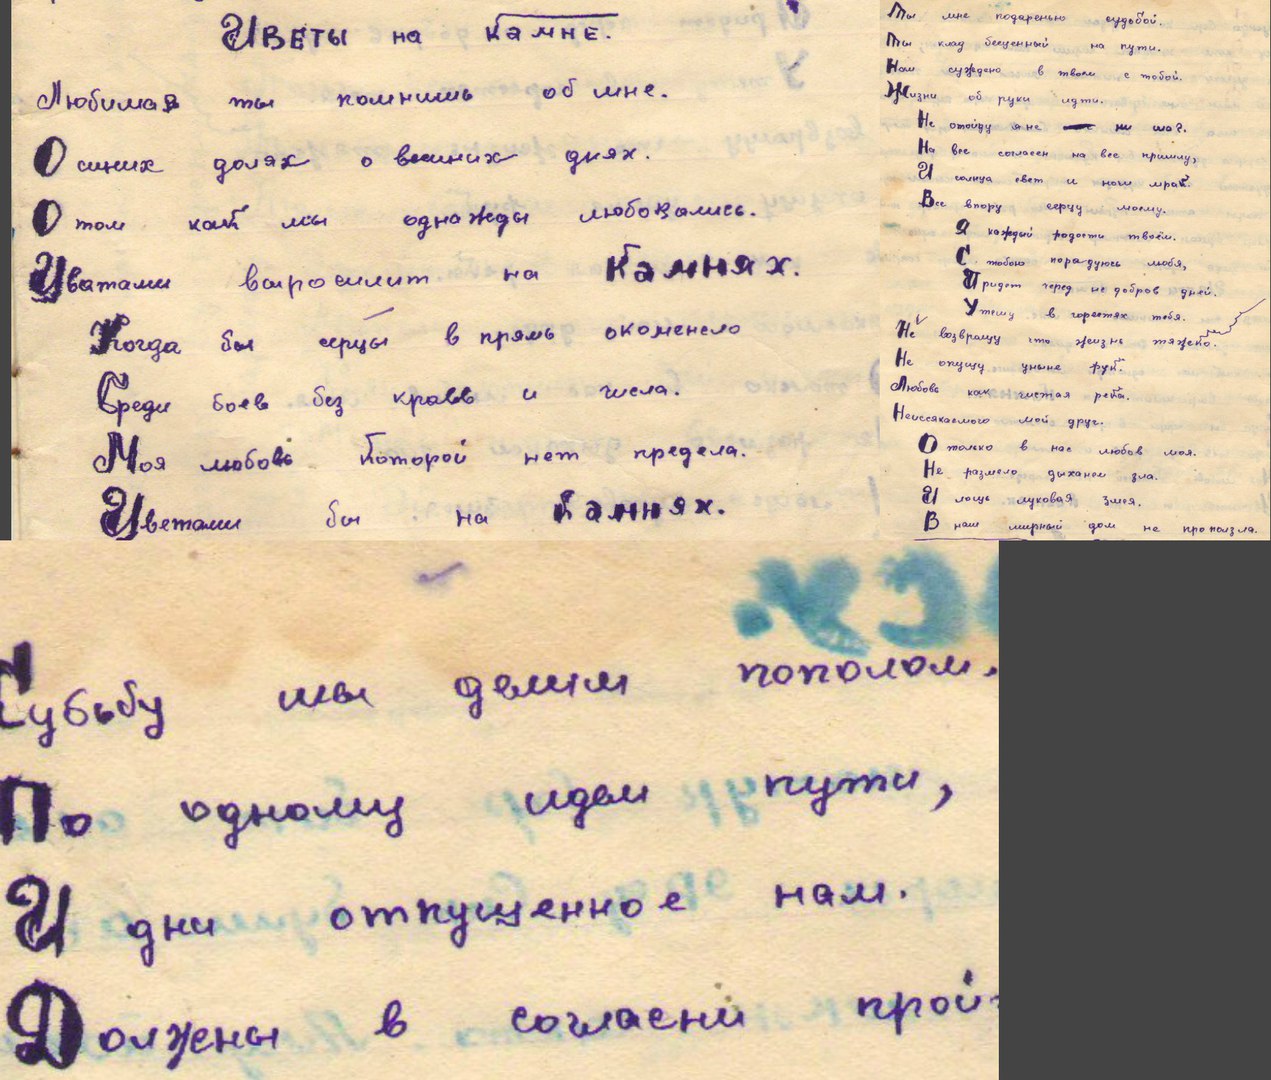 Цветы на камне.
Любимая ты помнишь об мне.
О синих долях о весних днях.
О том как мы однажды любовались.
Цватами выросилит на камнях.
Когда бы серцы в прямь окоменело
Среди боев без кравв и числа.
Моя любовь которой нет предела.
Цветами бы на камнях.
Ты мне подаренью судьбой.
Ты клад бесценный на пути.
Нам суждено в твоем с тобой.
Жизни об руки идти.
Не отойду я не ни шаг.
На все согласен на все приишу,
И солнца свет и ночи мрак.
Все впору серцу моему.
Я каждый радости твоем.
С тобою порадуюсь любя,
Придет черед не добров дней.
Утешу в горестях тебя.
Не возвращу что жизнь тяжело.
Не опущу уныне рук.
Любовь как чистая река.
Неиссякаемого мой друг.
О только в нас любов моя.
Не размело дыханем зла.
И лощь луковая змея.
В наш мирный дом не проползла.
Судьбу мы делим пополом.
По одному идем пути,
И дни отпущенное нам.
Должены в согласни прой